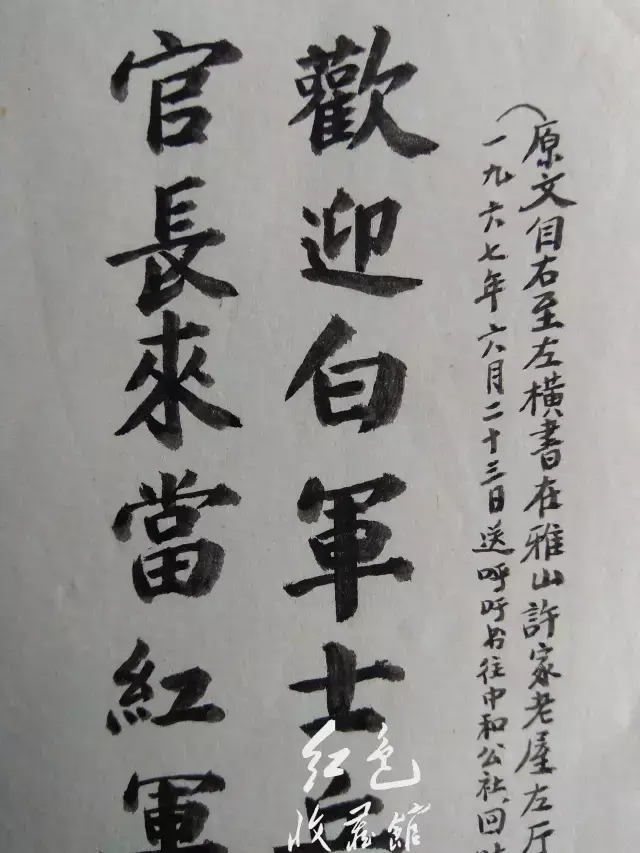 （原文自右至左橫書在雅山許家老屋左厅
一九六七年六月二十三日送呼吁书往中和公社回
歡迎白軍士兵
官長來當紅軍
红色
收藏館